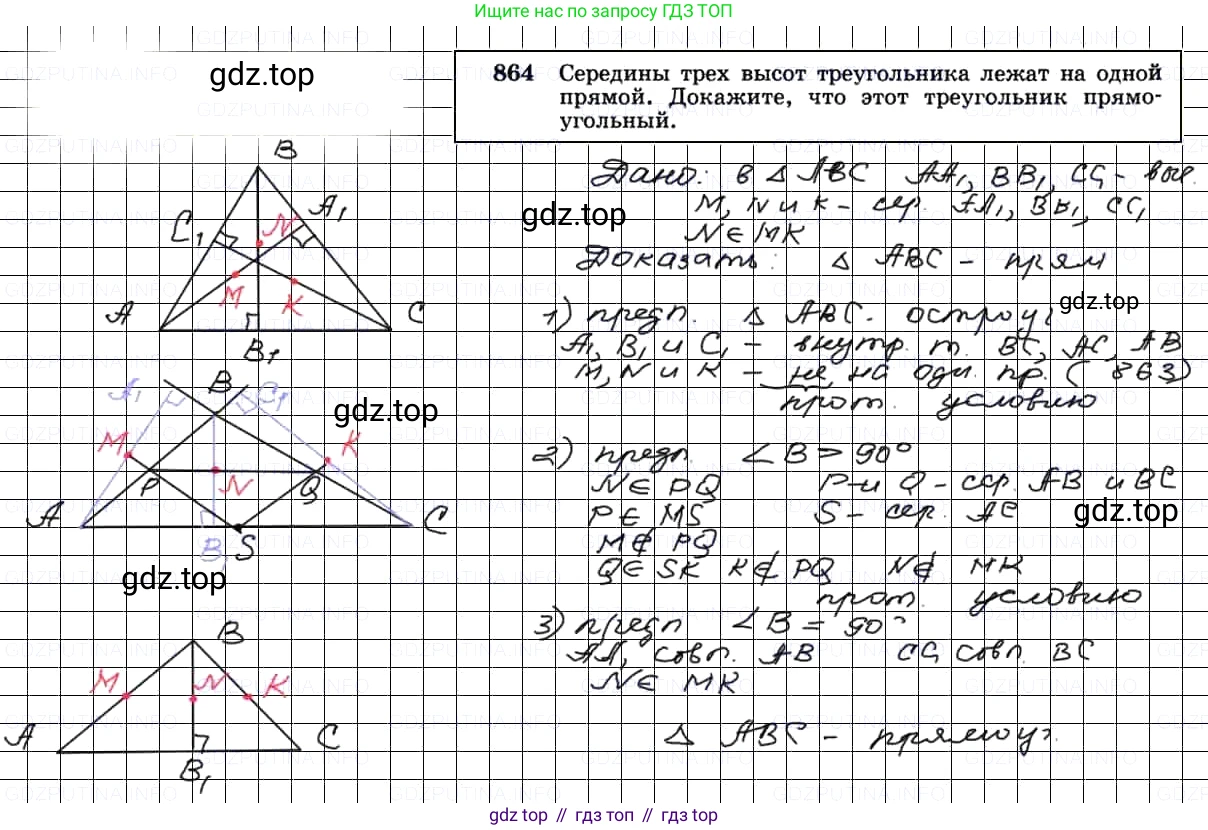 Ищите нас по запросу ГДЗ ТОП
gdz.top
864 Середины трех высот треугольника лежат на одной
прямой. Докажите, что этот треугольник прямо-
угольный.
Дано: в △ ABC AA₁, BB₁, CC₁ - выс.
M, N и K - сер. AA₁, BB₁, CC₁
N ∈ MK
Доказать: △ ABC - прям
1) предп. △ ABC - остроуг
A₁, B₁ и C₁ - внутр. т. BC, AC, AB
M, N и K - не на одн. пр. (863)
прот. условию
2) предп. ∠B > 90°
N ∈ PQ P и Q - сер. AB и BC
P ∈ MS S - сер. AC
M ∉ PQ
Q ∈ SK K ∉ PQ N ∉ MK
прот. условию
3) предп ∠B = 90°
AA₁ совп. AB CC₁ совп. BC
N ∈ MK
△ ABC - прямоуг.
B
C₁
N
A₁
M
K
A
C
B₁
gdz.top
gdz.top
A₁
B
C₁
gdz.top
M
K
P
N
Q
A
C
B₁
S
gdz.top
gdz.top
B
M
N
K
A
C
B₁
gdz.top // гдз.top // gdz.top